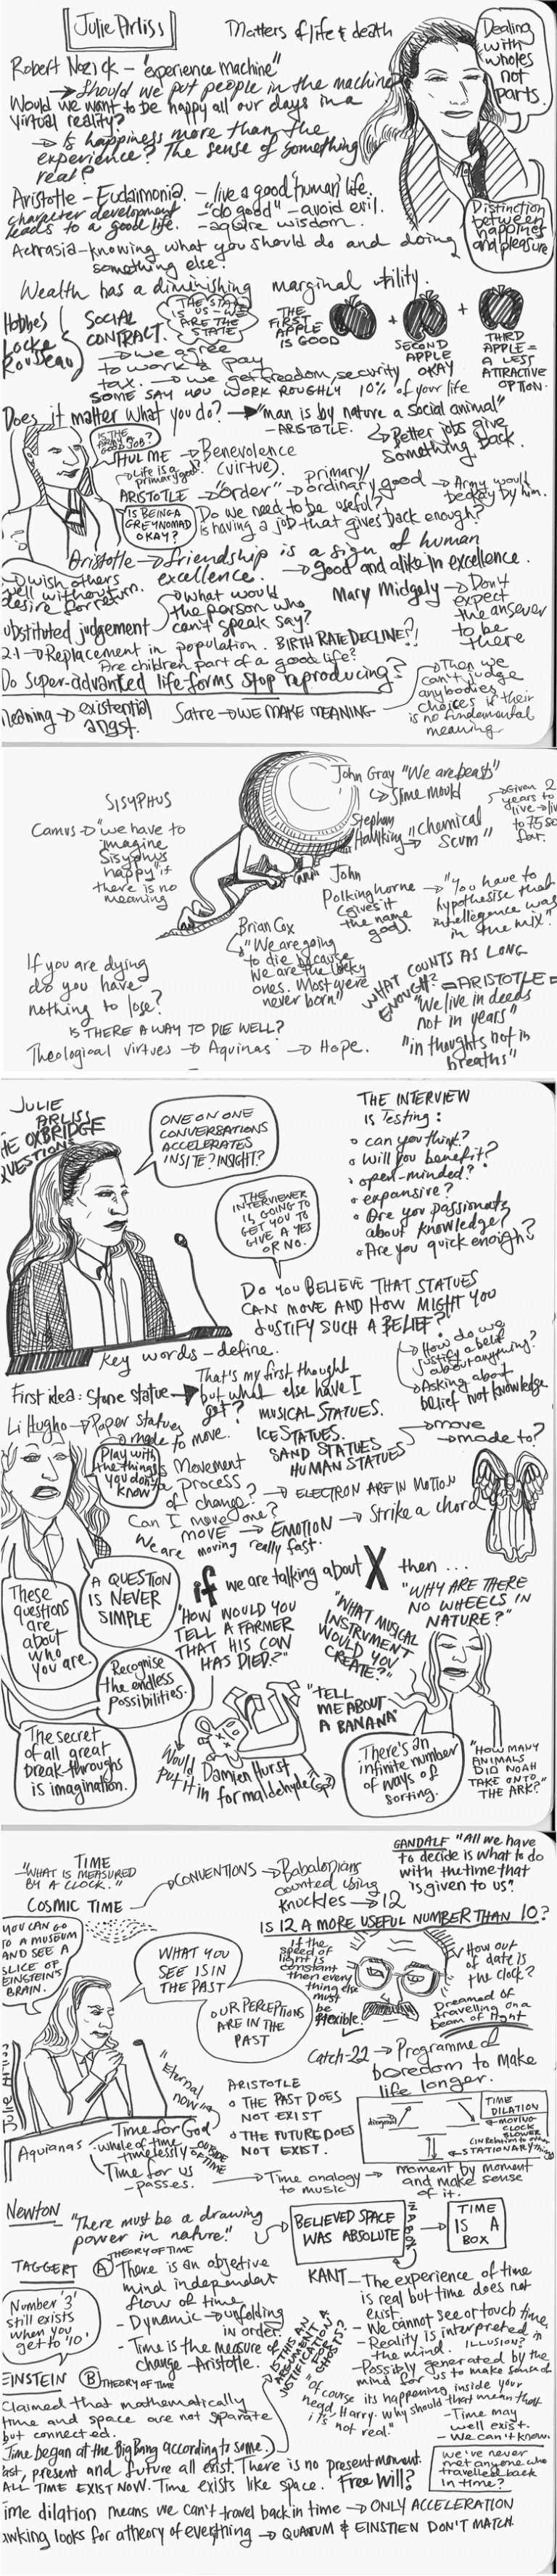 Julie Arliss
Matters of life & death
Dealing
with
wholes
not
parts.
Robert Nozick - "experience Machine"
→ Should we put people in the machine?
Would we want to be happy all our days in a
virtual reality?
→ Is happiness more than the
experience? The sense of something
real?
Distinction
between
happiness
and pleasure
Aristotle - Eudaimonia. - live a good 'human' life.
character development - "do good" - avoid evil.
leads to a good life. - aquire wisdom.
Achrasia - knowing what you should do and doing
something else.
Wealth has a diminishing marginal utility.
Hobbes
Locke
Rousseau
SOCIAL
CONTRACT.
THE STATE
IS US - WE
ARE THE
STATE
THE
FIRST
APPLE
IS GOOD
+
SECOND
APPLE
OKAY
+
THIRD
APPLE =
A LESS
ATTRACTIVE
OPTION.
→ we agree
to work & pay
tax. → we get freedom, security
SOME SAY YOU WORK ROUGHLY 10% of your life
Does it matter what you do? → "man is by nature a social animal"
- ARISTOTLE.
→ Better jobs give
something back.
HULME → Benevolence
(virtue).
→ Life is a
primary good?
ARISTOTLE → "Order" → primary/
ordinary good → Army would
be okay by him.
IS BEING A
GREY NOMAD
OKAY?
Do we need to be useful?
Is having a job that gives back enough?
Aristotle → friendship is a sign of human
excellence. → good and alike in excellence.
→ wish others
well without
desire for return.
→ what would
the person who
can't speak say?
ubstituted judgement
Mary Midgely → Don't
expect
the answer
to be
there
2.1 → Replacement in population. BIRTH RATE DECLINE?!
Are children part of a good life?
Do super-advanted life-forms stop reproducing?
→ Then we
can't judge
anybodies
choices if their
is no fundamental
meaning.
leaning → existential
angst.
Satre → WE MAKE MEANING
SISYPHUS
Camus → "we have to
imagine
Sisyphus
happy" if
there is no
meaning
John Gray "We are beasts"
→ Slime mould
Stephen
Hawking → "Chemical
Scum"
→ Given 2
years to
live → liv
to 75 so
far.
John
Polkinghorne
(gives it
the name
god).
→ "You have to
hypothesise that
intelligence was
in the mix".
Brian Cox
→ "We are going
to die because
we are the lucky
ones. Most were
never born"
If you are dying
do you have
nothing to lose?
IS THERE A WAY TO DIE WELL?
Theological virtues → Aquinas → Hope.
WHAT COUNTS AS LONG
ENOUGH? = ARISTOTLE =
"We live in deeds
not in years"
"in thoughts not in
breaths"
JULIE
ARLISS
HE OXBRIDGE
QUESTIONS
ONE ON ONE
CONVERSATIONS
ACCELERATES
INSITE? INSIGHT?
THE
INTERVIEWER
IS GOING TO
GET YOU TO
GIVE A YES
OR NO.
THE INTERVIEW
IS Testing:
• can you think?
• Will you benefit?
• open-minded?
• expansive?
• Are you passionate
about knowledge?
• Are you quick enough?
DO YOU BELIEVE THAT STATUES
CAN MOVE AND HOW MIGHT YOU
JUSTIFY SUCH A BELIEF?
Key words - define.
→ How do we
justify a belief
about anything?
→ Asking about
belief not knowledge
First idea: Stone statue → That's my first thought
but what else have I
got?
Li Hugho → Paper statues
→ made to move.
MUSICAL STATUES.
ICE STATUES.
SAND STATUES
HUMAN STATUES
→ move
→ made to?
Play with
the things
you don't
know
Movement
a process
of change? → ELECTRON ARE IN MOTION
Can I move one?
MOVE → EMOTION → Strike a chord
We are moving really fast.
These
questions
are
about
who
you are.
A QUESTION
IS NEVER
SIMPLE
Recognise
the endless
possibilities.
The secret
of all great
break-throughs
is imagination.
if we are talking about X then ...
"HOW WOULD YOU
TELL A FARMER
THAT HIS COW
HAS DIED?"
"WHAT MUSICAL
INSTRUMENT
WOULD YOU
CREATE?"
"WHY ARE THERE
NO WHEELS IN
NATURE?"
"TELL
ME ABOUT
A BANANA"
Would Damien Hurst
put it in formaldehyde (sp?)
There's an
infinite number
of ways of
sorting.
"HOW MANY
ANIMALS
DID NOAH
TAKE ONTO
THE ARK?"
TIME
- "WHAT IS MEASURED
BY A CLOCK."
COSMIC TIME
→ CONVENTIONS → Babalonians
counted using
knuckles → 12
GANDALF "All we have
to decide is what to do
with the time that
is given to us".
IS 12 A MORE USEFUL NUMBER THAN 10?
YOU CAN GO
TO A MUSEUM
AND SEE A
SLICE OF
EINSTEIN'S
BRAIN.
WHAT YOU
SEE IS IN
THE PAST
OUR PERCEPTIONS
ARE IN THE
PAST
If the
speed of
light is
constant
then every
thing else
must
be
flexible!
How out
of date is
the clock?
Dreamed of
travelling on a
beam of light
Catch-22 → Programme of
boredom to make
life longer.
Julie Arliss
"Eternal
now"
ARISTOTLE
• THE PAST DOES
NOT EXIST
• THE FUTURE DOES
NOT EXIST.
TIME
DILATION
← MOVING
CLOCK
SLOWER
← STATIONARY
Aquianas
Time for God
- whole of time
- timelessly OUTSIDE
OF TIME
Time for us
- passes.
→ Time analogy
to music → moment by moment
and make sense
of it.
Newton - "There must be a drawing
power in nature."
BELIEVED SPACE
WAS ABSOLUTE
→
TIME
IS A
BOX
TAGGERT
(A) THEORY OF TIME
There is an objetive
mind independent
flow of time
- Dynamic → unfolding
in order.
- Time is the measure of
change - Aristotle.
Number '3'
still exists
when you
get to '10'
KANT - The experience of time
is real but time does not
exist.
- We cannot see or touch time.
- Reality is interpreted in
the mind. ILLUSION?
- Possibly generated by the
mind for us to make sense of
IS THIS AN
ARGUMENT A
JUSTIFICATION
FOR
GHOSTS?
"Of course its happening inside your
head, Harry. why should that mean that
it's not real."
- Time may
well exist.
- We can't know.
EINSTEIN (B) THEORY OF TIME
Claimed that mathematically
time and space are not sparate
but connected.
Time began at the Big Bang according to some.
ast, present and future all exist. There is no present moment.
ALL TIME EXIST NOW. Time exists like space. Free Will?
we've never
met anyone who
travelled back
in time?
ime dilation means we can't travel back in time → ONLY ACCELERATION
awking looks for a theory of everything → QUATUM & EINSTIEN DON'T MATCH.